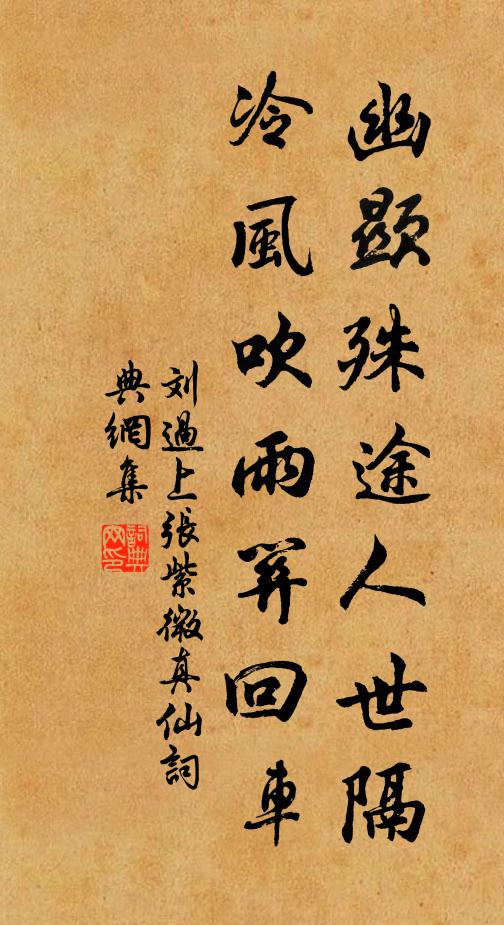 幽顯殊途人世隔
冷風吹雨筭回車
刘過上張紫微真仙詞
典網集
詞典网印